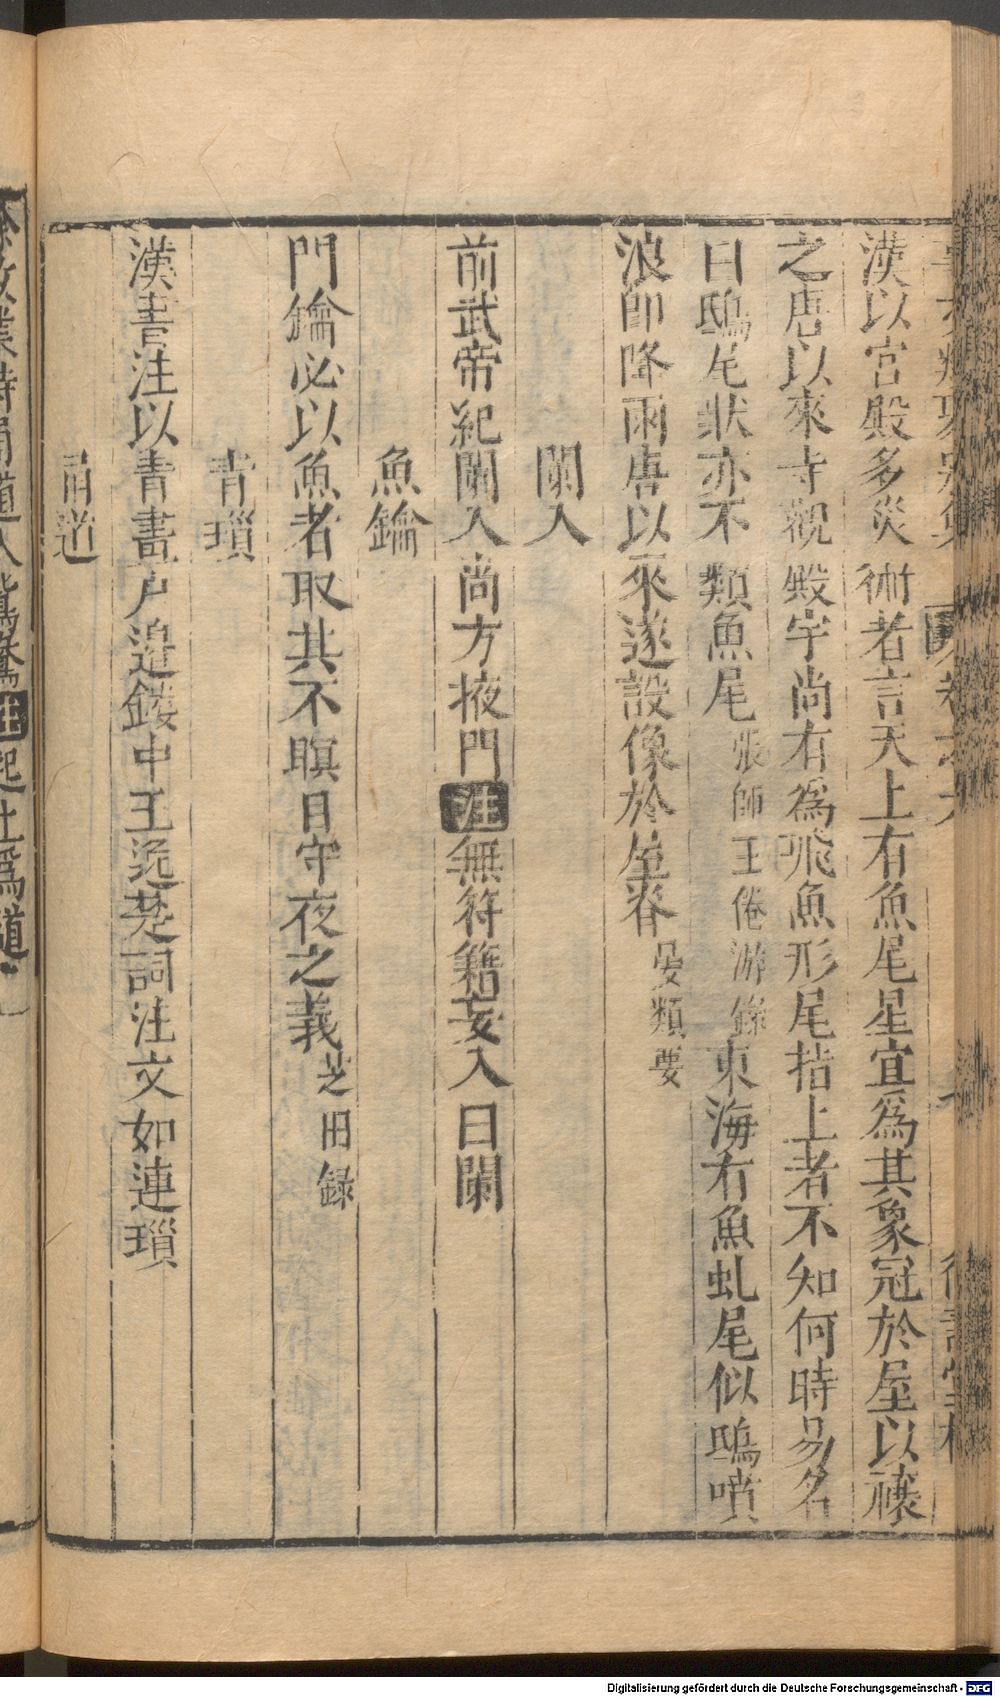 漢以宮殿多災術者言天上有魚尾星宜爲其象冠於屋以禳
之唐以來寺觀殿宇尚有爲飛魚形尾指上者不知何時易名
曰鴟尾狀亦不類魚尾張師王倦游錄東海有魚虬尾似鴟噴
浪卽降雨唐以來遂設像於屋脊晏類要
闌入
前武帝紀闌入尚方掖門注無符籍妄入曰闌
魚鑰
門鑰必以魚者取其不瞑目守夜之義芝田録
青瑣
漢書注以青畫戸邉鏤中王逸楚詞注文如連瑣
甬道
起土爲道
Digitalisierung gefördert durch die Deutsche Forschungsgemeinschaft - DFG